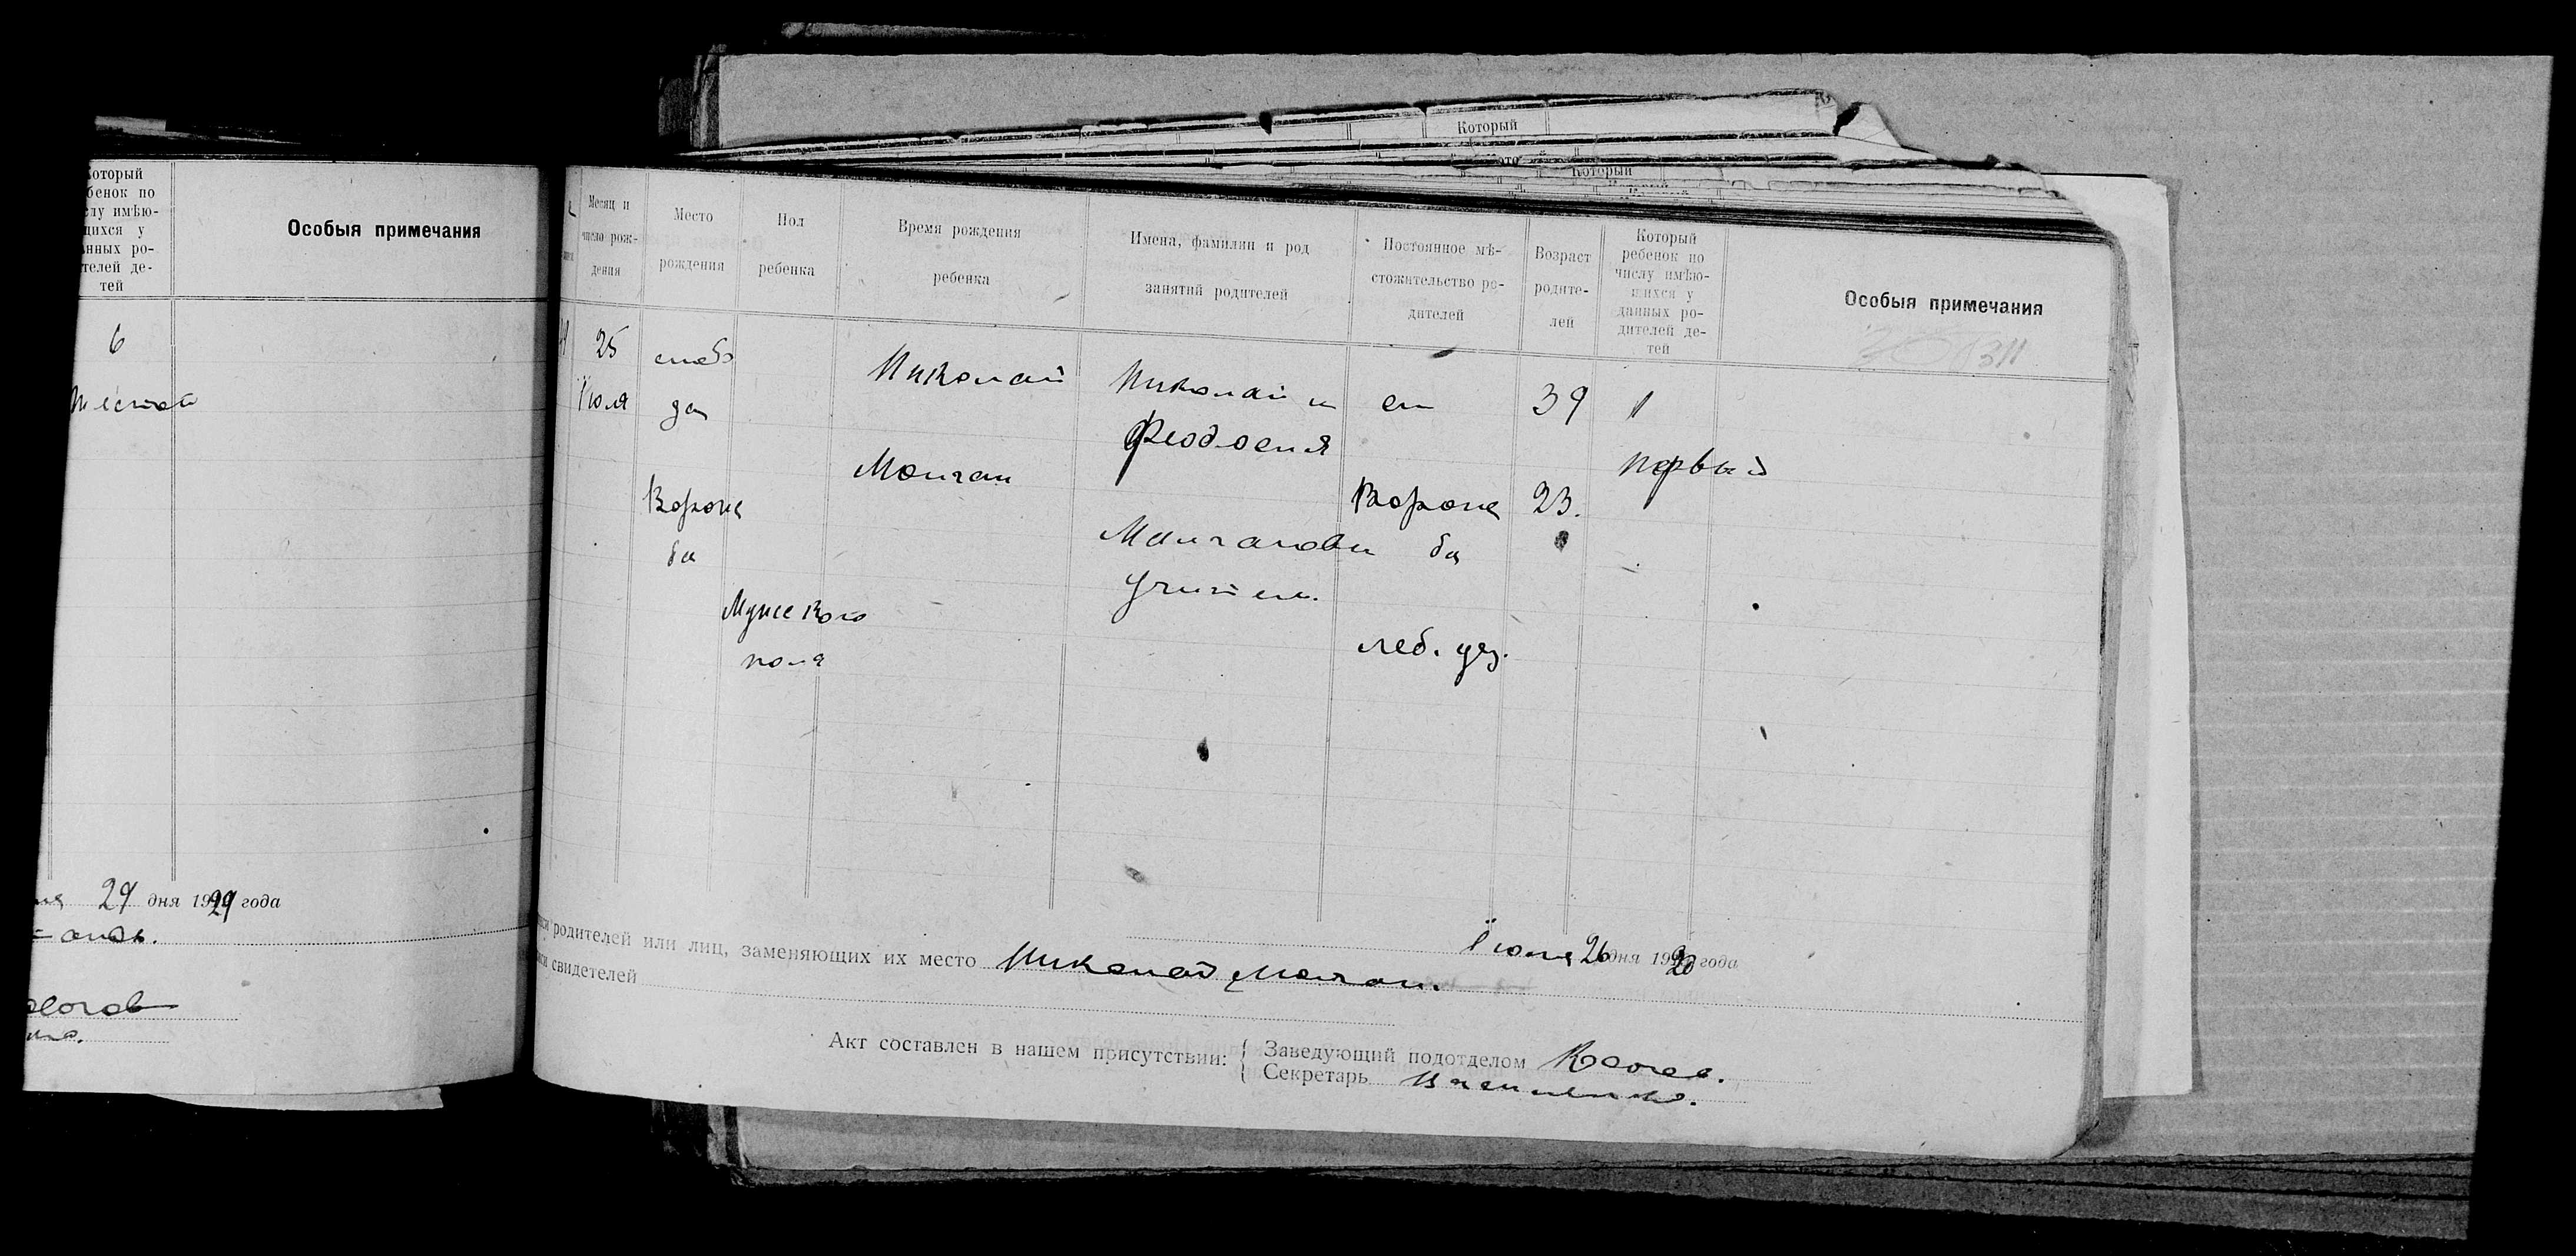 Который
Который
Который
бенок по
слу имѣю-
щихся у
анных ро-
телей де-
тей
Особыя примечания
6
шестой
29 дня 1920 года
Месяц и
число рож-
дения
Место
рождения
Пол
ребенка
Время рождения
ребенка
Имена, фамилии и род
занятий родителей
Постоянное мѣ-
стожительство ро-
дителей
Возраст
родите-
лей
Который
ребенок по
числу имѣю-
щихся у
данных ро-
дителей де-
тей
Особыя примечания
25
Iюля
слобо
да
Вороне
ба
Мужского
пола
Николай
Молчан
Николай и
Феодосия
Молчановы
учитель
сл
Вороне
ба
Леб. уез.
39
23.
1
первый
Iюля 26 дня 1920 года
родителей или лиц, заменяющих их место Николай Молчан.
свидетелей
Акт составлен в нашем присутствии:
Заведующий подотделом
Секретарь